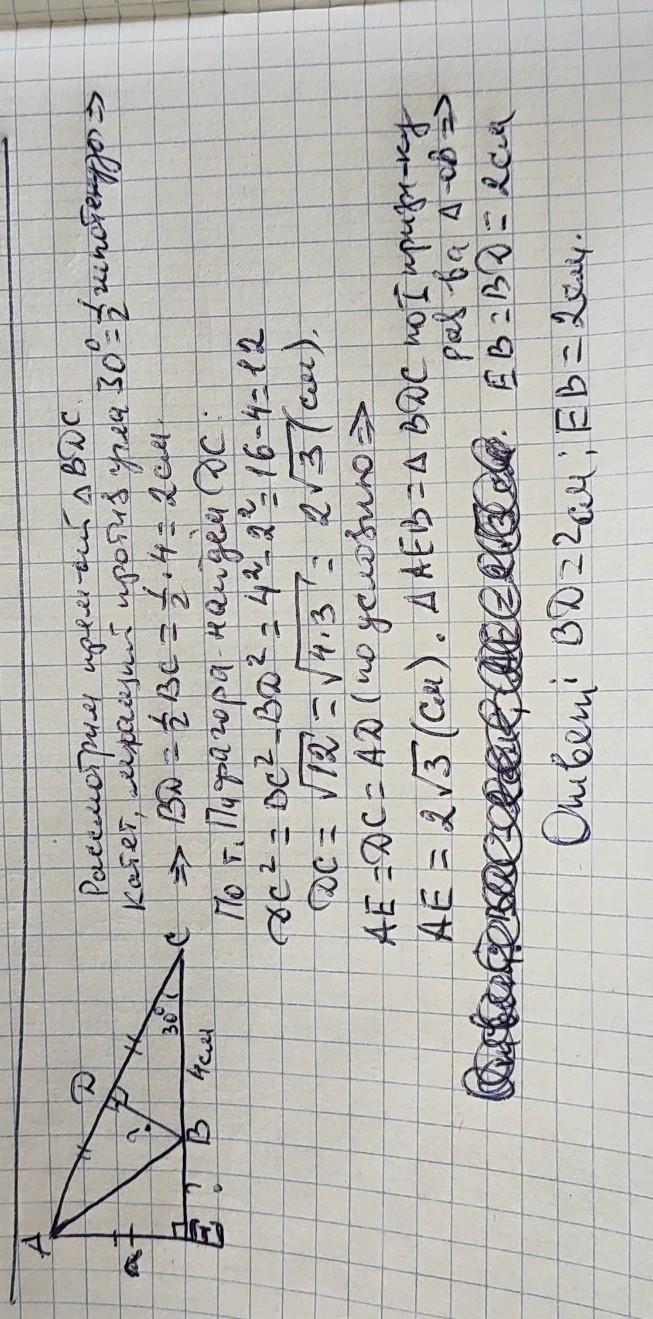 A
D
?
30°
C
4см
B
?
E
Рассмотрим прям-ый △ BDC.
Катет, лежащий против угла 30° = 1/2 гипотенузы ⇒
⇒ BD = 1/2 BC = 1/2 · 4 = 2 см.
По т. Пифагора найдём DC:
DC² = BC² - BD² = 4² - 2² = 16 - 4 = 12
DC = √12 = √4·3 = 2√3 (см).
AE = DC = AD (по условию ⇒
AE = 2√3 (см). △ AEB = △ BDC по I призн-ку
рав-ва △-ов ⇒
EB = BD = 2 см
Ответ: BD = 2 см; EB = 2 см.